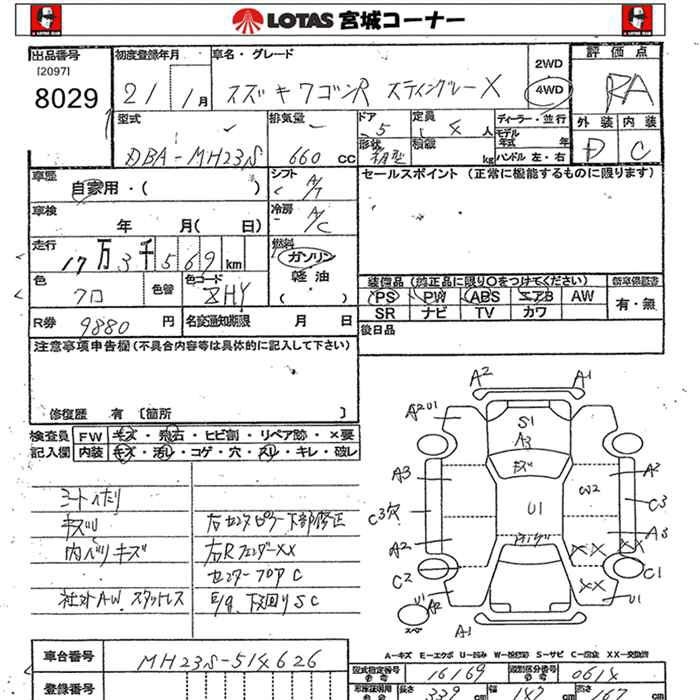 LOTAS 宮城コーナー
出品番号 初度登録年月 車名・グレード 2WD 評価点
[2097]
8029 21 1月 スズキ ワゴンR スティングレーX 4WD RA
型式 排気量 ドア 定員 ディーラー・並行 外装 内装
DBA-MH23S 660 CC 5 4人 モデル年式 年 D C
形状 箱型 積載 kg ハンドル 左・右
車歴 自家用・( ) シフト A/T セールスポイント (正常に機能するものに限ります)
車検 年 月( 日) 冷房 A/C
走行 17万3千569km 燃料 ガソリン
軽油
( ・ )
色 クロ 色替 色コード ZHY 装備品 (純正品に限り○をつけてください) 新車保証書
PS PW ABS エアB AW 有・無
R券 9880 円 名変通知期限 月 日 SR ナビ TV カワ
後日品
注意事項申告欄 (不具合内容等は具体的に記入して下さい)
修復歴 有 [箇所 ]
検査員 FW キズ・飛石・ヒビ割・リペア跡・×要
記入欄 内装 キズ・汚レ・コゲ・穴・スレ・キレ・破レ
シートヘタリ
キズU 右センターピラー下部修正
内ハリキズ 右Rフェンダー××
センターフロアC
社外AW スタットレス E/g.下廻りSC
A2 A1
A2U1 S1
A3
キズ
A3 W2 A2
C3穴 U1 C3
A2 A3
×× ××
C2 ×× C1
U1 A2 U1
スペア A1
A-キズ E-エクボ U-凹み W-板金跡 S-サビ C-腐食 XX-交換済
車台番号 MH23S-514626
型式指定番号 16169 類別区分番号 0614
登録番号 長さ 339 cm 幅 147 cm 高さ 167 cm